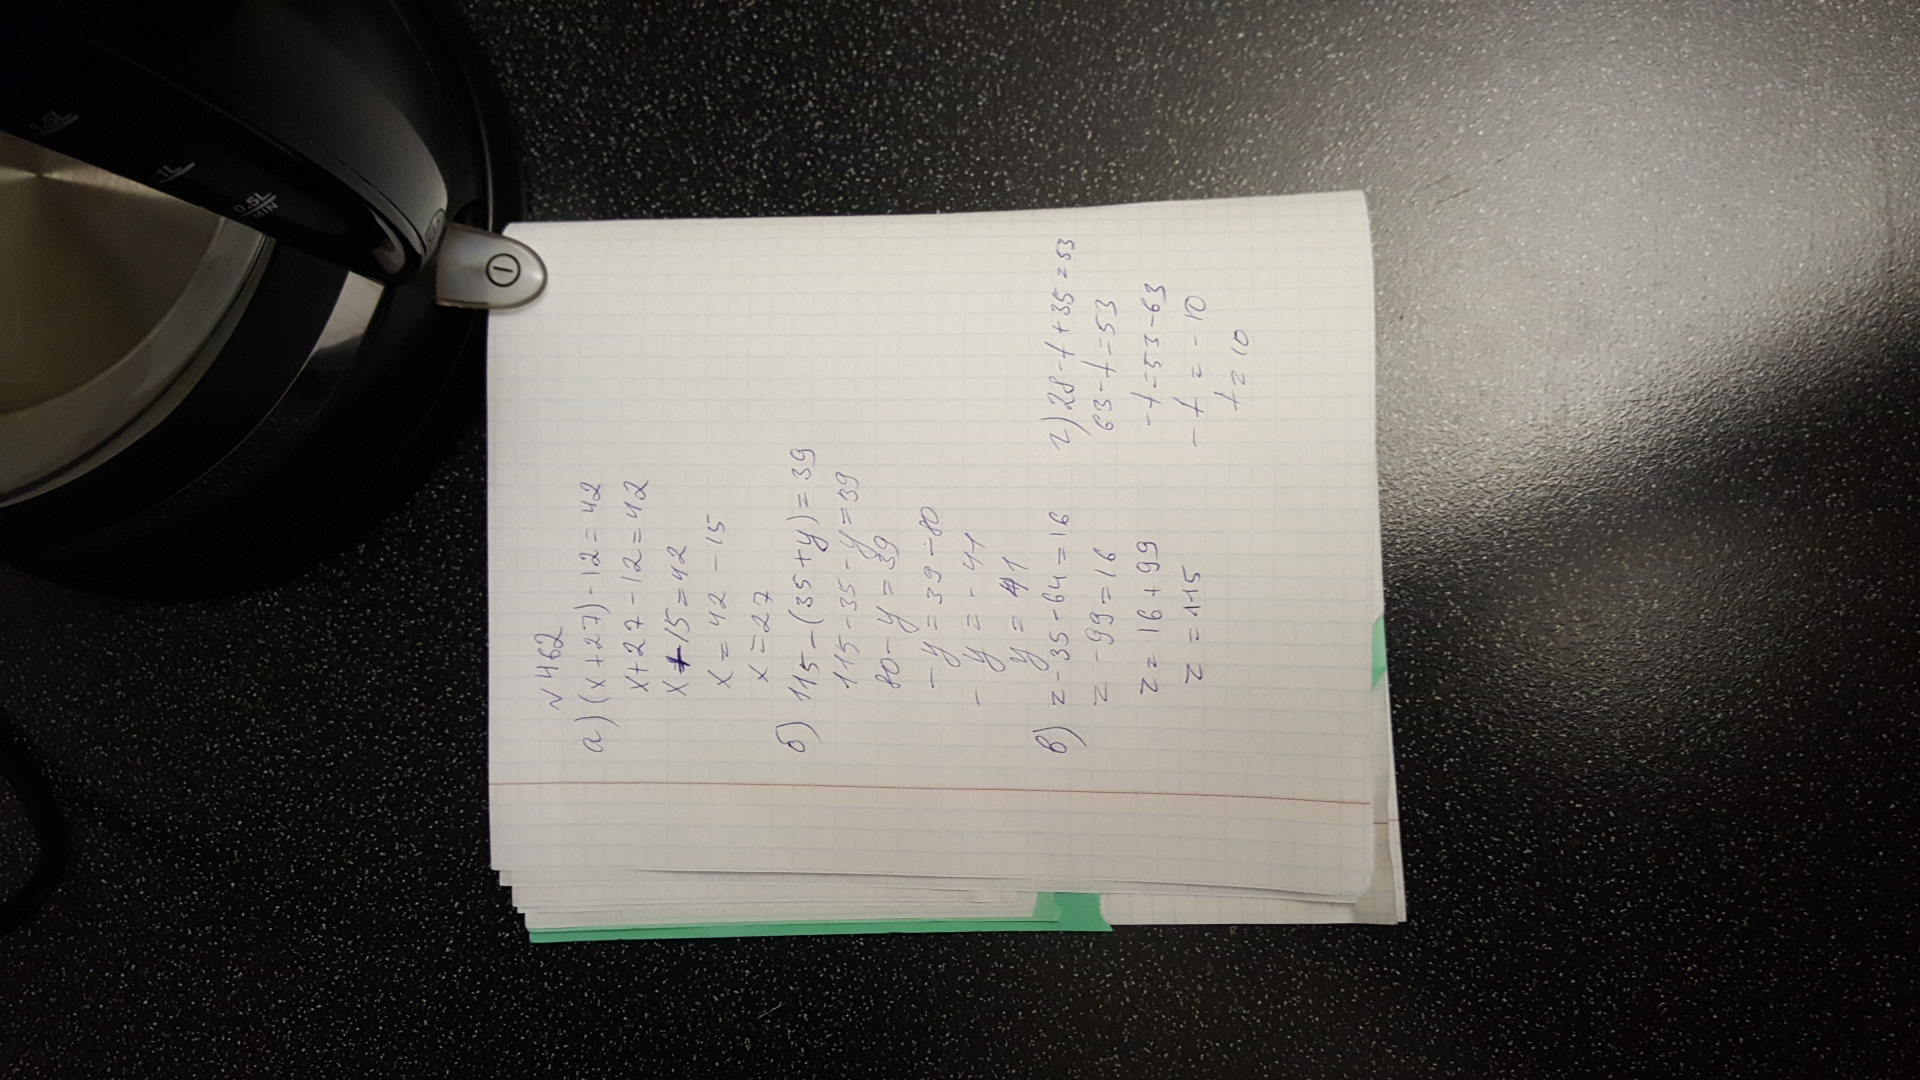 1.5L
1L
0.5L
MIN
N 462
а) (x+27)-12=42
x+27-12=42
x+15=42
x=42-15
x=27
б) 115-(35+y)=39
115-35-y=39
80-y=39
-y=39-80
-y=-41
y=41
в) z-35-64=16
z-99=16
z=16+99
z=115
г) 28-t+35=53
63-t=53
-t=53-63
-t=-10
t=10